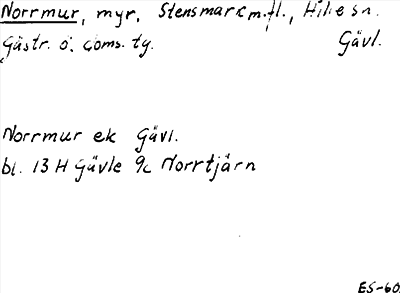 Norrmur, myr, Stensmark m.fl., Hille sn.
Gästr. ö. doms. tg. Gävl.
Norrmur ek Gävl.
bl. 13 H Gävle 9c Norrtjärn
ES-60